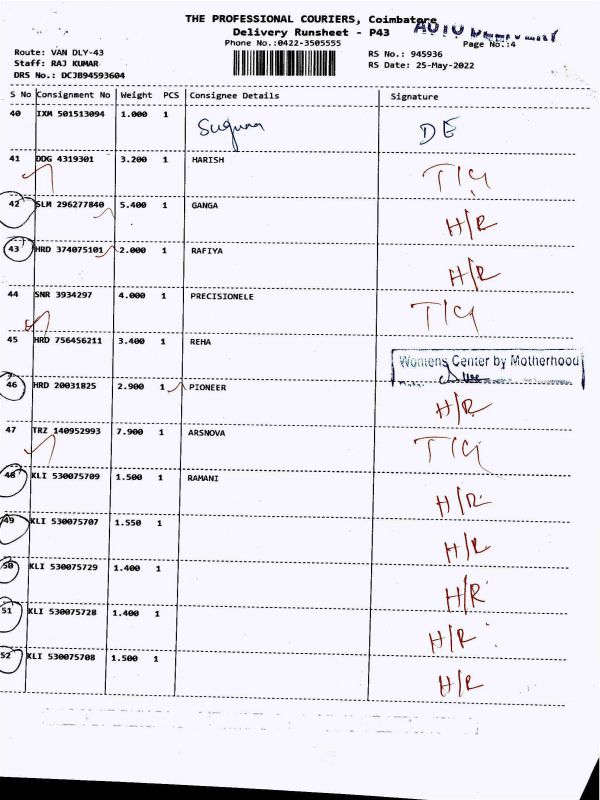 THE PROFESSIONAL COURIERS, Coimbatore
AUTO DELIVERY
Delivery Runsheet - P43
Phone No.:0422-3505555
Page No.:4
Route: VAN DLY-43
RS No.: 945936
Staff: RAJ KUMAR
RS Date: 25-May-2022
DRS No.: DCJB94593604
S No Consignment No Weight PCS Consignee Details Signature
40 IXM 501513094 1.000 1 Suguna DE
41 DDG 4319301 3.200 1 HARISH T/G
42 SLM 296277840 5.400 1 GANGA H/R
43 HRD 374075101 2.000 1 RAFIYA H/R
44 SNR 3934297 4.000 1 PRECISIONELE T/G
45 HRD 756456211 3.400 1 REHA Womens Center by Motherhood
46 HRD 20031825 2.900 1 PIONEER H/R
47 TRZ 140952993 7.900 1 ARSNOVA T/G
48 KLI 530075709 1.500 1 RAMANI H/R
49 KLI 530075707 1.550 1 H/R
50 KLI 530075729 1.400 1 H/R
51 KLI 530075728 1.400 1 H/R
52 KLI 530075708 1.500 1 H/R